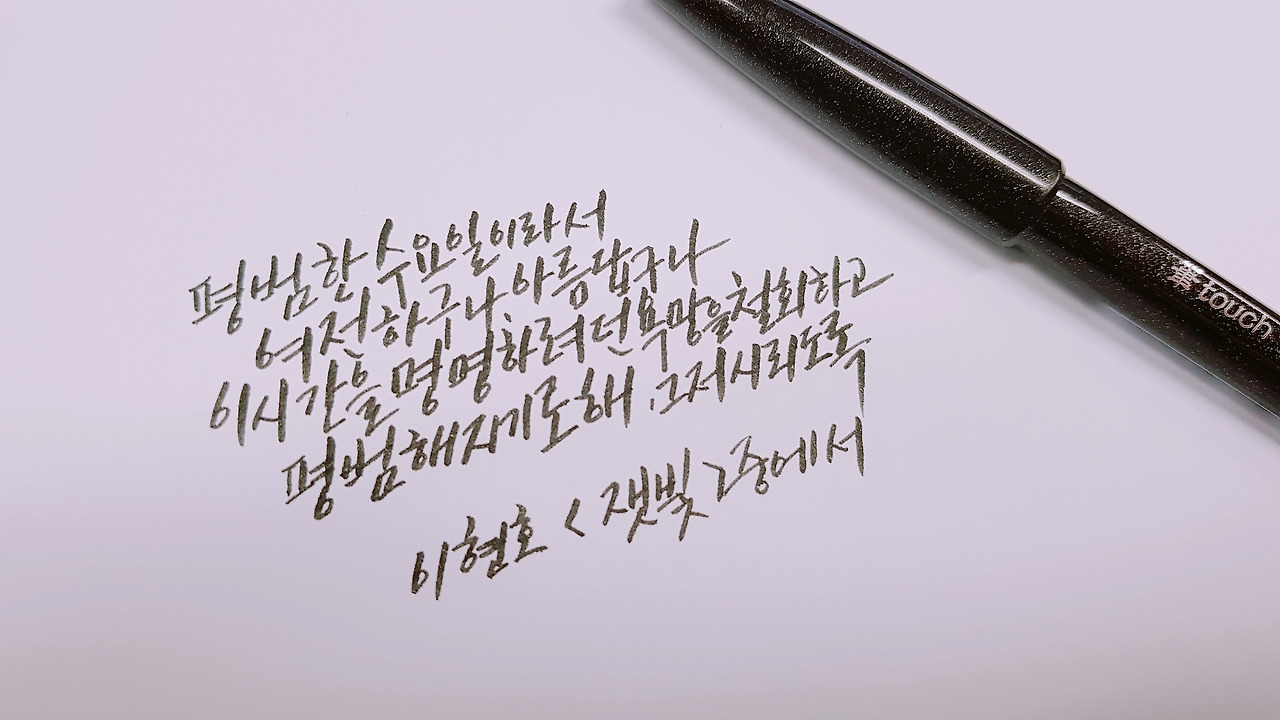 평범한 수요일이라서
여전하구나, 아름답구나
이 시간을 명명하려던 욕망을 철회하고
평범해지기로 해. 그저 시리도록
이현호 < 잿빛 > 중에서
筆 touch